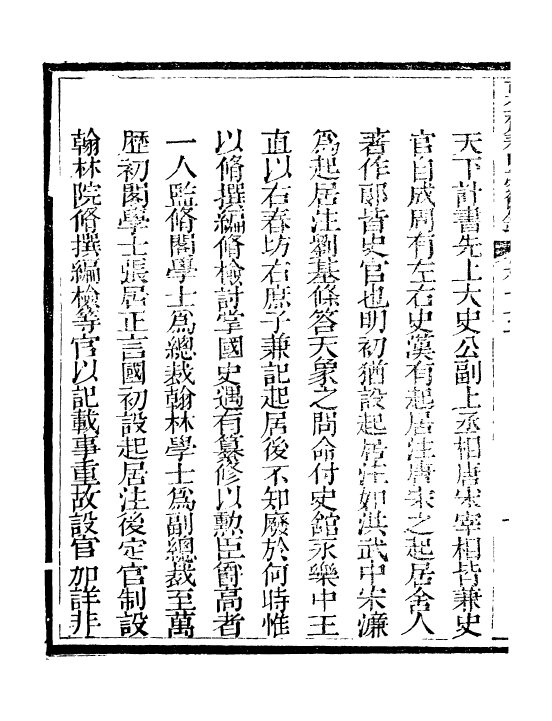 天下計書先上太史公副上丞相唐宋宰相皆兼史
官自成周有左右史漢有起居注唐宋之起居舍人
著作郎皆史官也明初猶設起居注如洪武中宋濂
爲起居注劉基條答天象之問命付史館永樂中王
直以右春坊右庶子兼記起居後不知廢於何時惟
以脩撰編脩檢討掌國史遇有纂修以勲臣爵高者
一人監脩閣學士爲總裁翰林學士爲副總裁至萬
歷初閣學士張居正言國初設起居注後定官制設
翰林院脩撰編檢等官以記載事重故設官加詳非